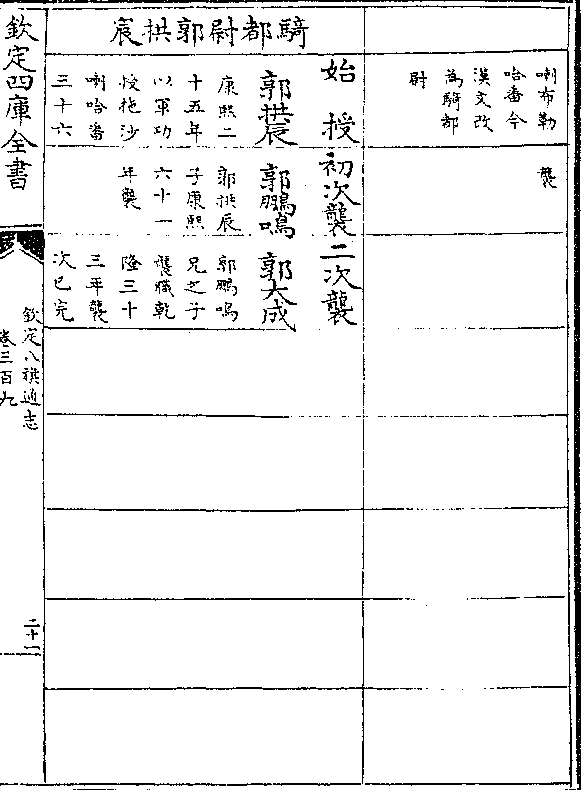 喇布勒
哈畨今
漢文改
為騎都
尉
襲
騎都尉郭拱宸
始授
郭拱宸
康熙二
十五年
以軍功
授拖沙
喇哈畨
三十六
初次襲
郭鵬鳴
郭拱宸
子康熙
六十一
年襲
二次襲
郭大成
郭鵬鳴
兄之子
襲職乾
隆三十
三年襲
次已完
欽定四庫全書
欽定八旗通志
卷三百九
二十一